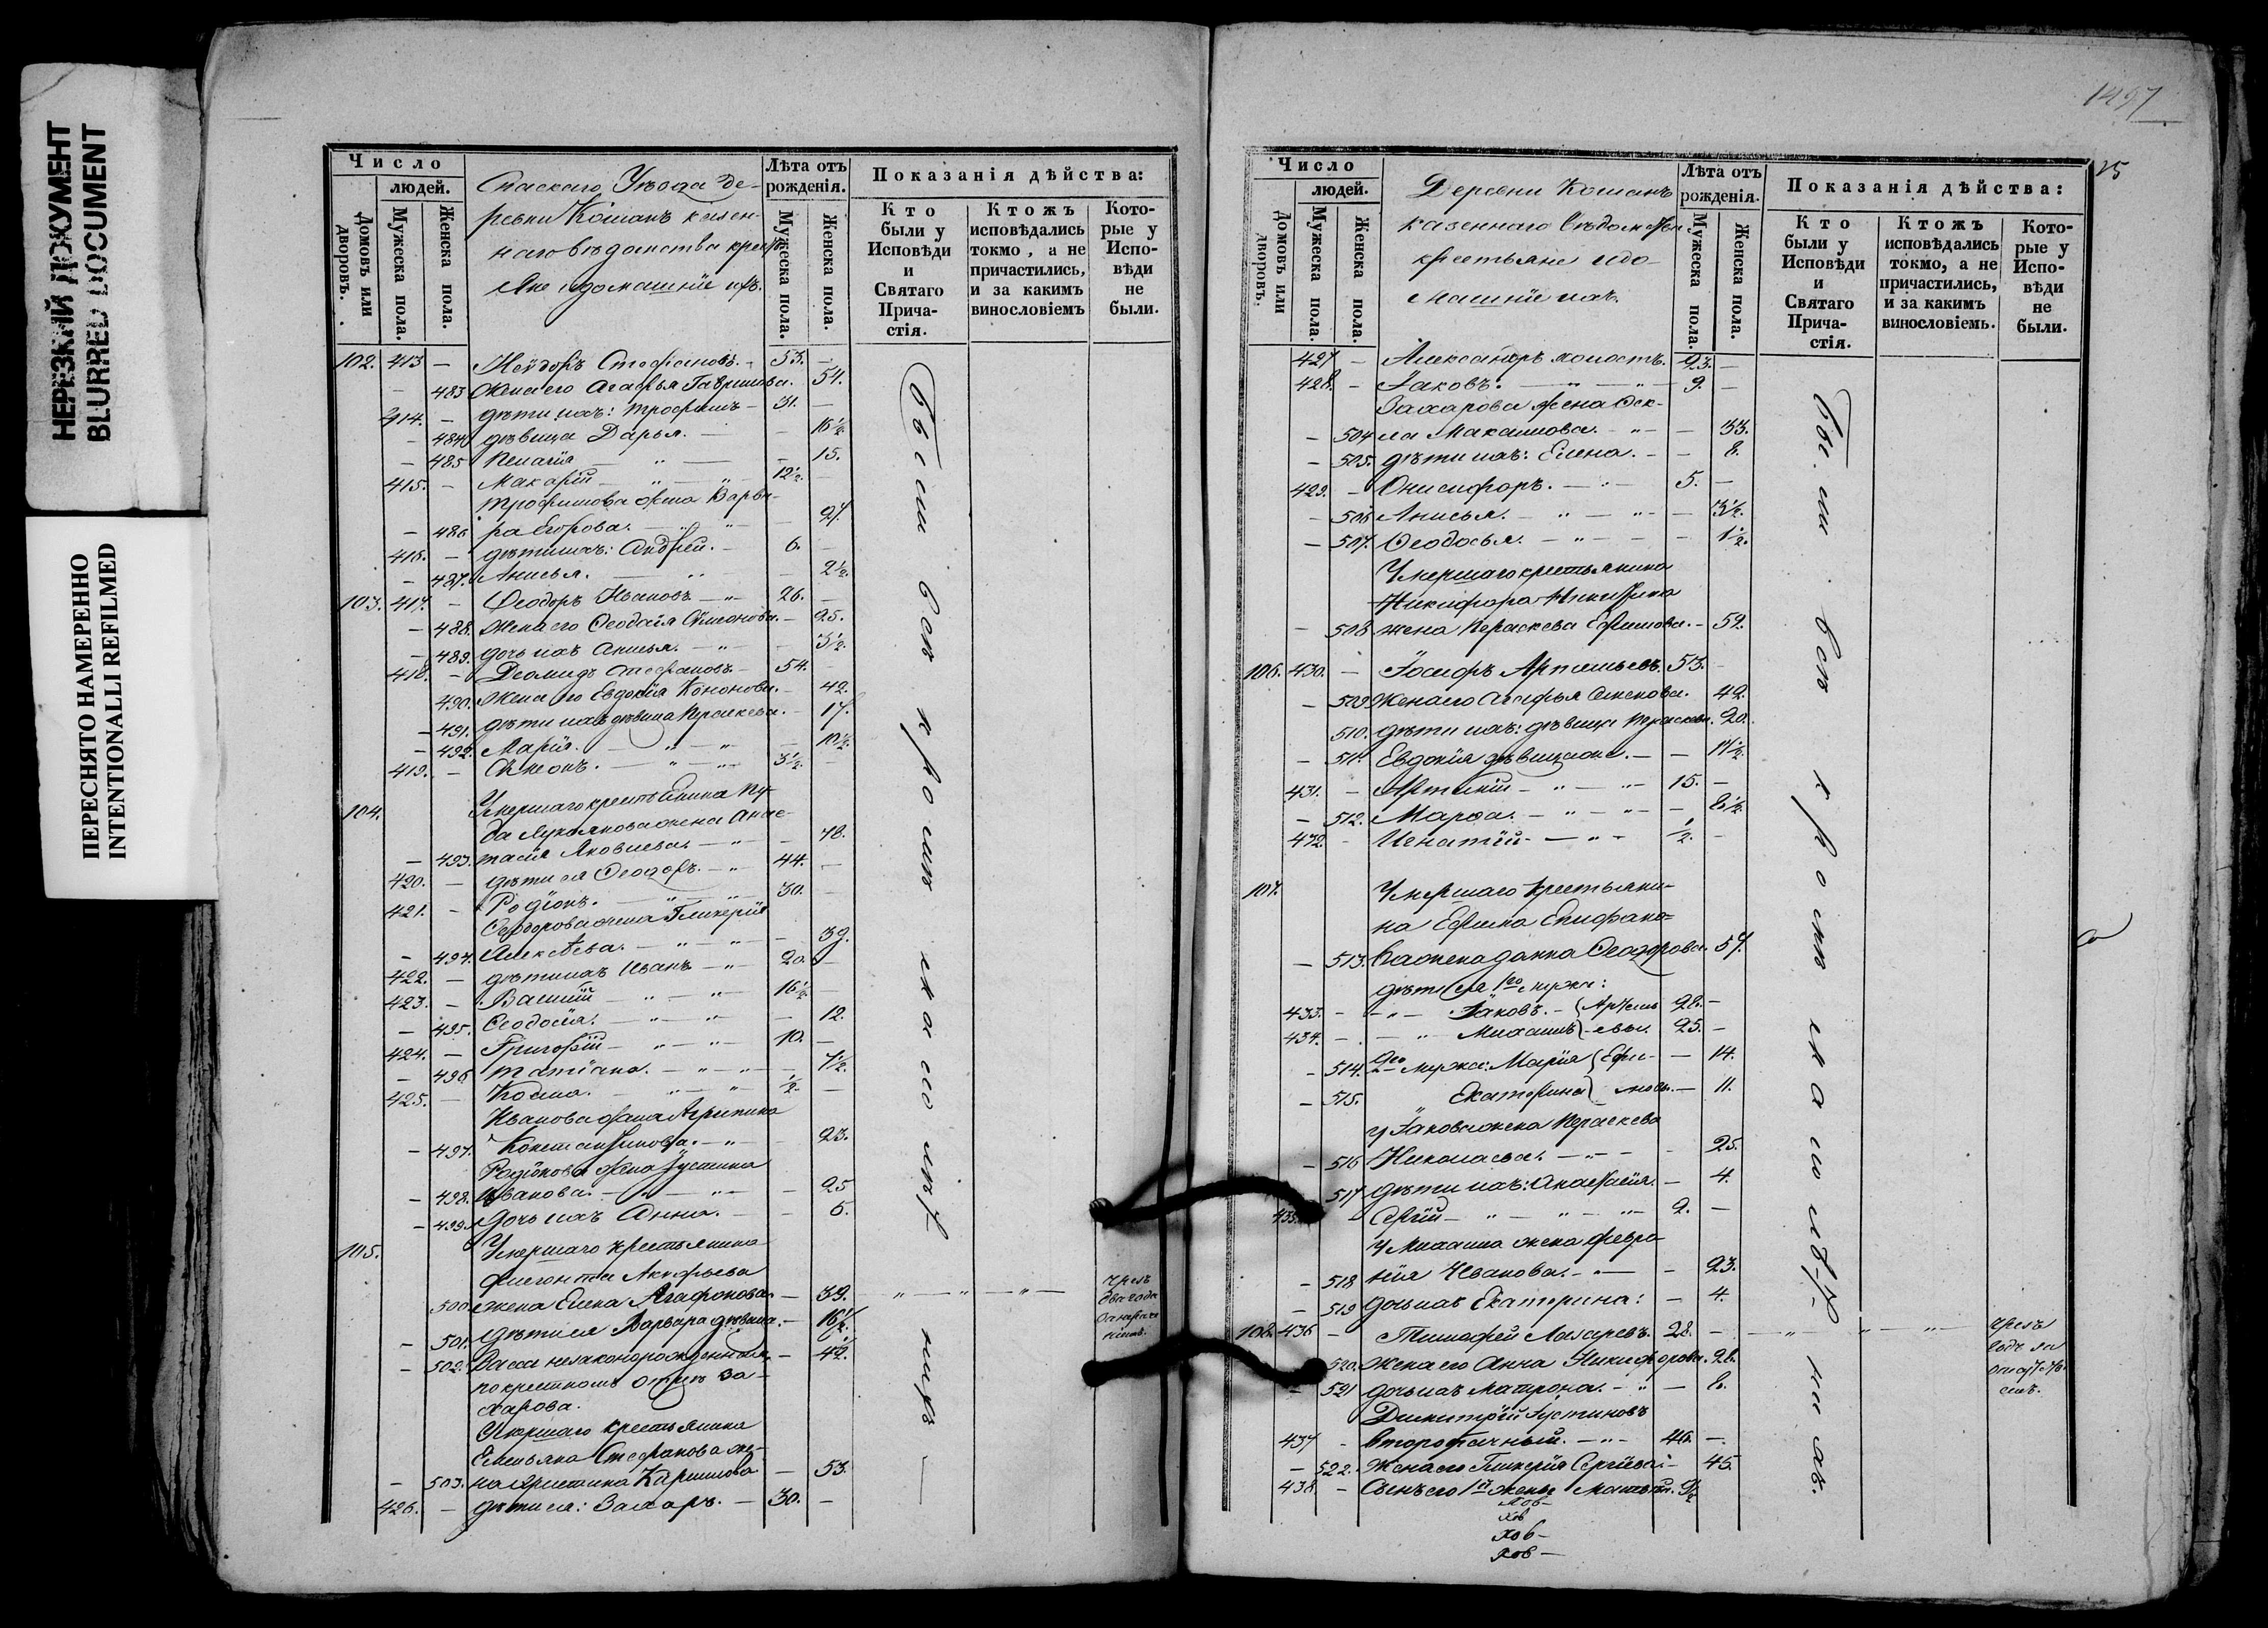 НЕРЕЗКИЙ ДОКУМЕНТ
BLURRED DOCUMENT
ПЕРЕСНЯТО НАМЕРЕННО
INTENTIONALLI REFILMED
Число
людей.
Домовъ или дворовъ.
Мужеска пола.
Женска пола.
Спаскаго Уѣзда де-
ревни Кошакъ казен-
наго вѣдомства крест
яне и домашніе ихъ.
Лѣта отъ
рожденія.
Мужеска пола.
Женска пола.
Показанія дѣйства:
Кто
были у
Исповѣди
и
Святаго
Прича-
стія.
Ктожъ
исповѣдались
токмо, а не
причастились,
и за какимъ
винословіемъ
Кото-
рые у
Испо-
вѣди
не
были.
102. 413 — Стефановъ. — 53. —
— 483 Жена его Агафья Гаврилова. 54.
414. — дѣти ихъ: Трофимъ — 31. —
— 484 дѣвица Дарья. — — 16½
— 485 Пелагія — „ — — 15.
415. — Макарій — „ — „ 12½ —
Трофимова жена Варва-
— 486 ра Егорова. — „ — 27.
416. — дѣти ихъ: Андрей. — 6. —
— 487. Анисья. — „ — 2½.
103. 417. — Ѳеодоръ Ивановъ — „ — 26. —
— 488. Жена его Ѳеодосія Симонова. — 25.
— 489. дочь ихъ Анисья. — „ — 3½.
418. — Діомидъ Стефановъ — 54. —
490. Жена его Евдокія Кононова. — 42.
— 491. дѣти ихъ дѣвица Параскева. — 17.
— 492. Марія. — „ — „ — 10½.
419. — Симеонъ. — „ — „ 3½. —
104. Умершаго крестьянина
Лукьянова жена Анас-
— 493. тасія Яковлева. — „ — 78.
420. — дѣти ея Ѳеодоръ. — „ 44. —
421. — Родіонъ. — „ — „ 30. —
Ѳеодорова жена Гликерія
— 494. Алексѣева. — „ — „ — 39.
422. — дѣти ихъ Иванъ — „ — 20. —
423. — Василій — „ — „ 16½ —
— 495. Ѳеодосія. — „ — „ — 12.
424. — Григорій — „ — „ — 10. —
— 496 Татіана. — „ — „ — 7½.
425. — Косма. — „ — „ ½. —
Иванова жена Агрипина
— 497. Константинова. — „ — 23.
Родіонова жена Іустина
— 498. Иванова. — „ — „ — 25
— 499. дочь ихъ Анна. — — 6.
105. Умершаго крестьянина
Филегонта Акифьева
500 жена Елена Агафонова. — 39. „ — „ — „ —
чрезъ
два года
— 501. дѣти ея Варвара дѣвица. — 16½.
— 502. Васса незаконорожденная, — 4½.
по крестномъ отцѣ За-
харова.
Умершаго крестьянина
Емельяна Стефанова же-
— 503. на Христина Карпилова — 53.
426. — дѣти ея: Захаръ. — 30. —
Были всѣ кромѣ
1497
25
Число
людей.
Домовъ или дворовъ.
Мужеска пола.
Женска пола.
Деревни Кошакъ
казеннаго вѣдомства
крестьяне и до-
машніе ихъ.
Лѣта отъ
рожденія.
Мужеска пола.
Женска пола.
Показанія дѣйства:
Кто
были у
Исповѣди
и
Святаго
Прича-
стія.
Ктожъ
исповѣдались
токмо, а не
причастились,
и за какимъ
винословіемъ.
Кото-
рые у
Испо-
вѣди
не
были.
427 — Александръ холостъ. 23. —
428. — Іаковъ. — „ — „ — 9. —
Захарова жена Ѳек-
— 504 ла Максимова. — „ — — 33.
— 505. дѣти ихъ: Елена. — — 8.
429. — Онисифоръ. — „ — 5. —
— 506 Анисья. — „ — „ — — 3½.
— 507. Ѳеодосья. — „ — — — 1½.
Умершаго крестьянина
Никифора Никитина
— 508 жена Параскева Ефимова. — 59.
106. 430. — Іосифъ Артемьевъ. 53. —
— 509 Жена его Агафья Семенова. 42.
510. дѣти ихъ: дѣвица Параскева. 20.
— 511. Евдокія дѣвица же. — — 17½
431. — Артемій — „ — „ — 15. —
— 512. Марѳа. — „ — „ — — 8½.
432. — Игнатій — — „ — ½. —
107. Умершаго крестьяни-
на Ефима Епифано-
— 513. ва жена Ѳеодорова. 57.
дѣти ея 1го мужа:
433. — — „ — Іаковъ. — 28. —
434. — — „ Михаилъ — евы. 25. —
— 514. 2го мужа: Марія Ефи- — 14.
— 515. „ Екатерина мовы. — 11.
у Іакова жена Параскева
— 516 Николаева. — „ — — 25.
517 дѣти ихъ: Анастасія. — 4.
435. — Сергій — „ — „ — „ — 2. —
у Михаила жена Февро-
— 518 нія Иванова. — „ — — 23.
— 519 дочь ихъ Екатерина: — 4.
108. 436 — Тимофей Лазаревъ. 28. — — „ — „ — „ —
чрезъ
годъ за
520. Жена его Анна Никифорова. 28.
— 521 дочь ихъ Матрона. — „ — 8.
Димитрій Іустиновъ
437 — второбрачный. — „ — 46. —
— 522. Жена его Гликерія Сергіева — 45.
438. — Сынъ его 1й жены Матвѣй. 9½
Хов
Хов —
Хов —
Были всѣ кромѣ